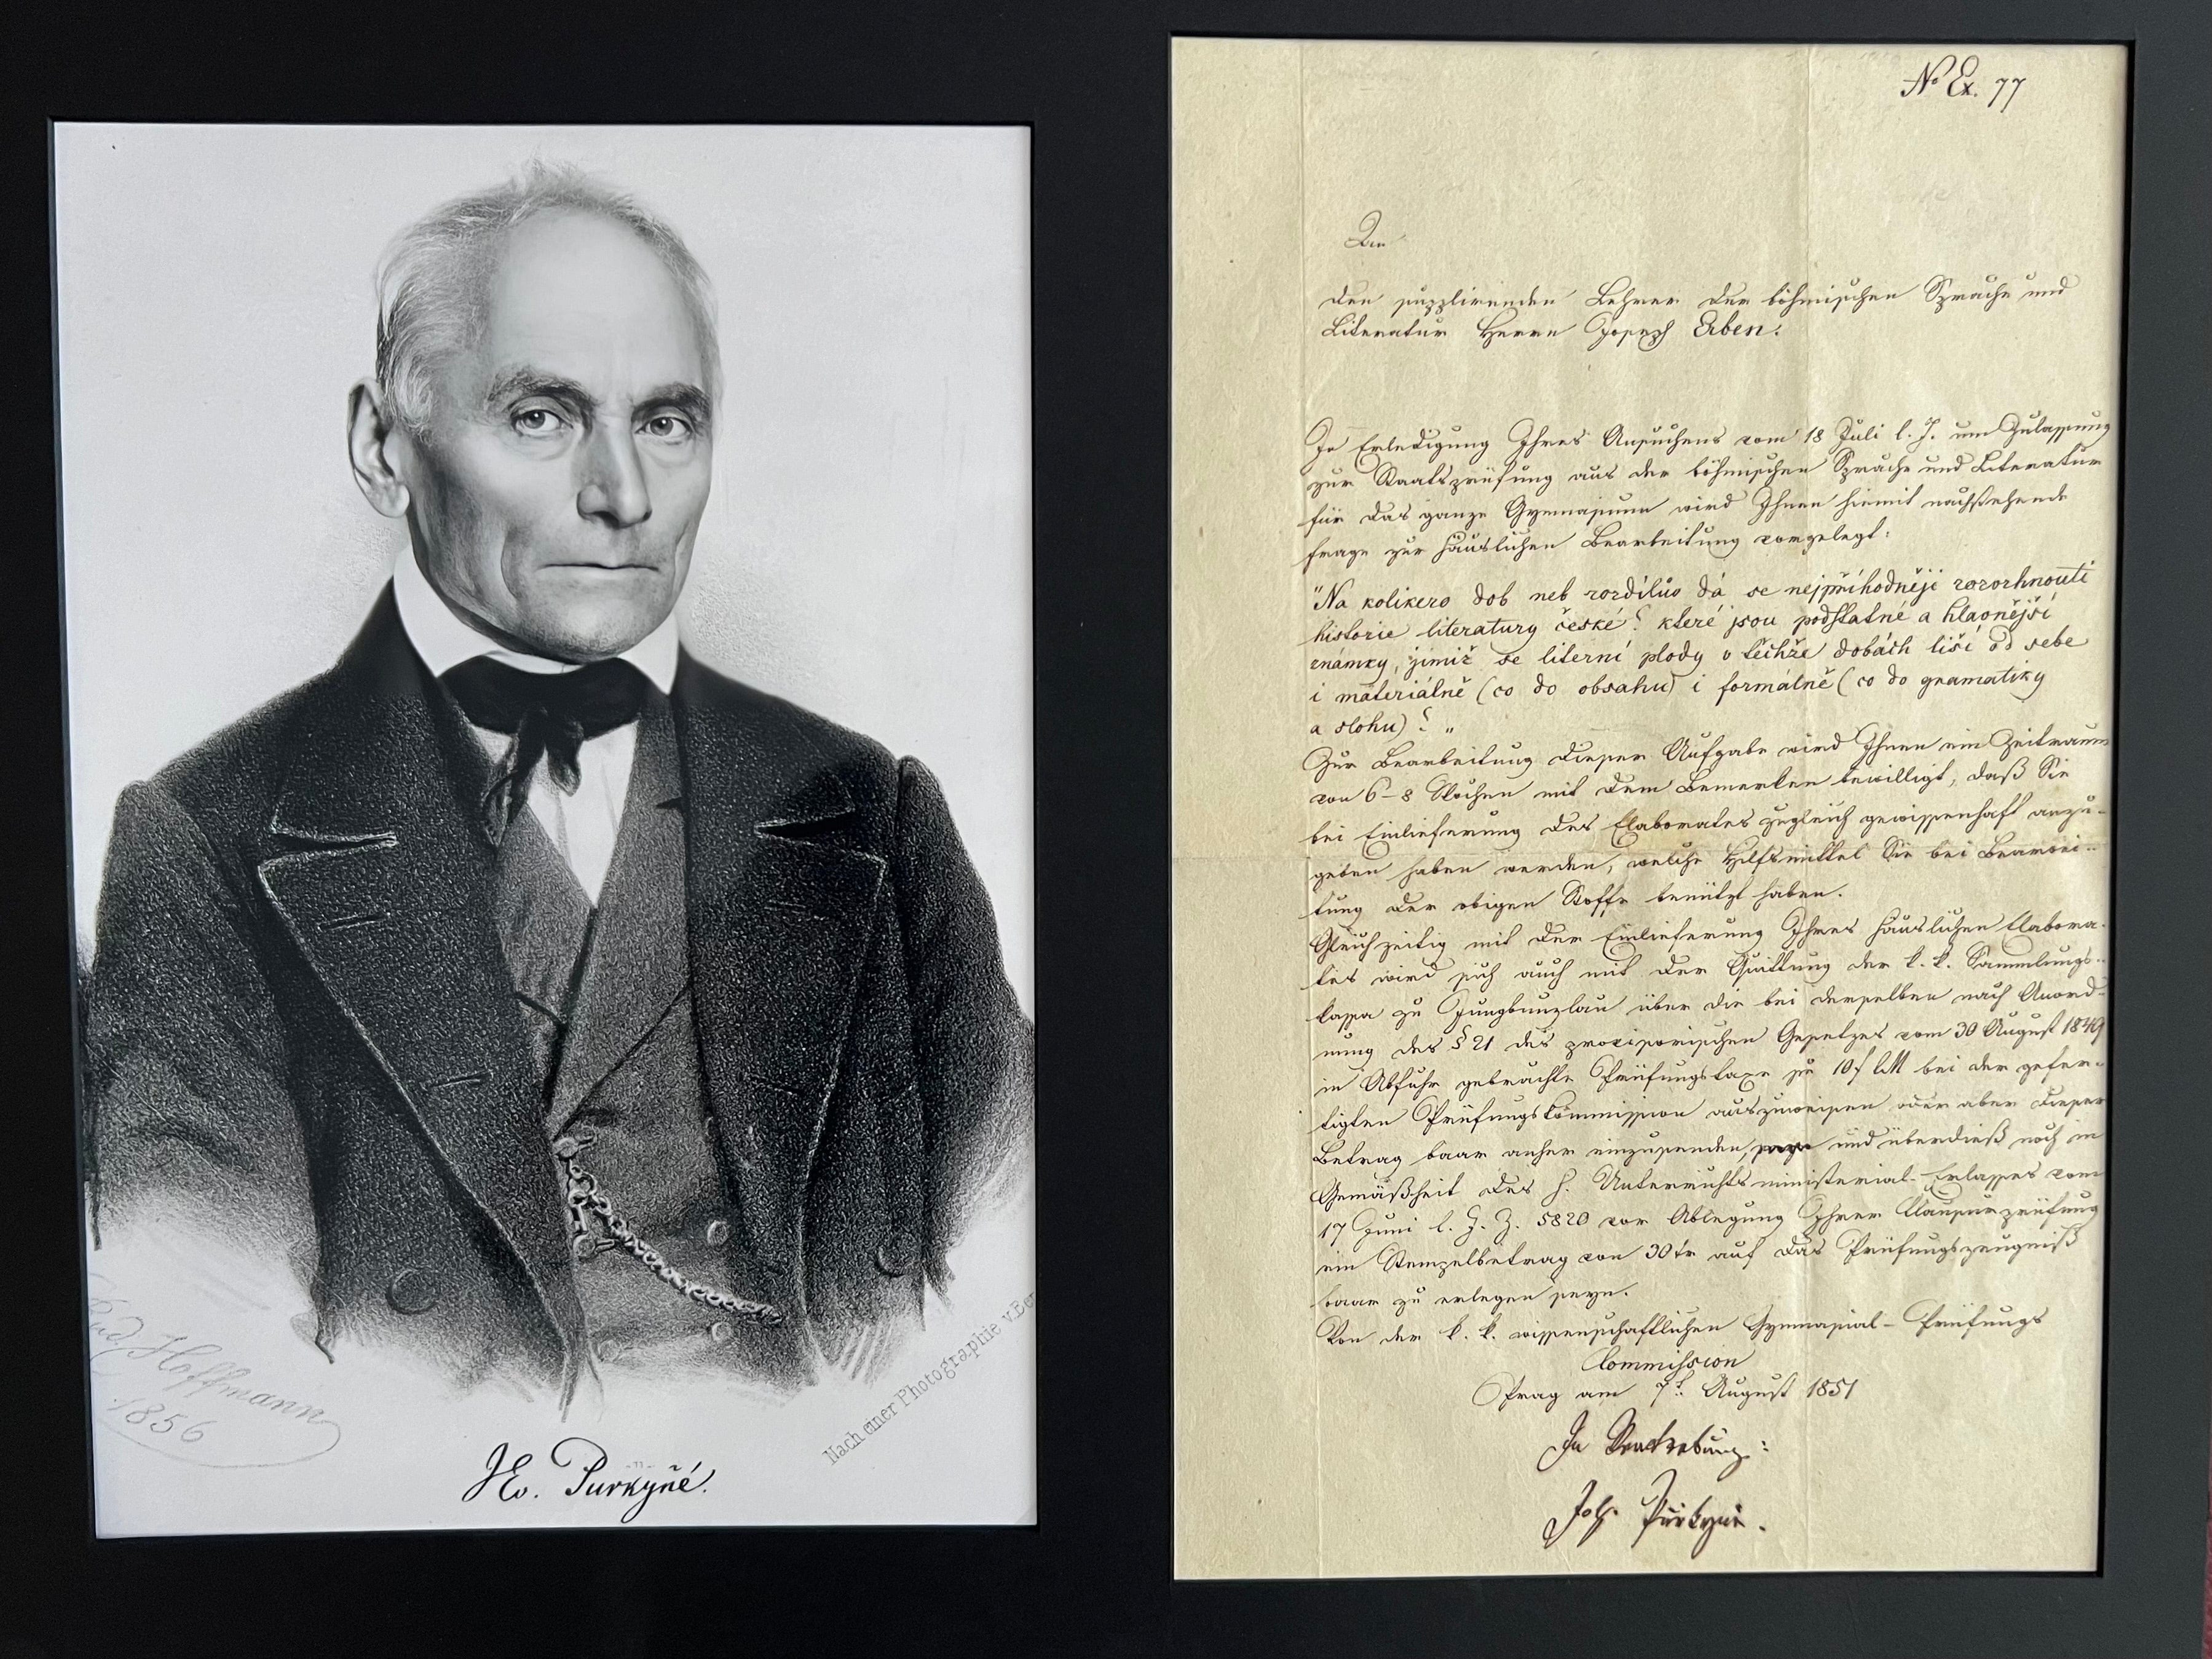 Rud. Hoffmann
1856
Nach einer Photographie v.
JEv. Purkyně.
No Ex. 77
An
den supplirenden Lehrer der böhmischen Sprache und
Literatur Herrn Joseph Erben.
In Erledigung Ihres Ansuchens vom 18 Juli l. J. um Zulassung
zur Staatsprüfung aus der böhmischen Sprache und Literatur
für das ganze Gymnasium wird Ihnen hiemit nachstehende
Frage zur häuslichen Bearbeitung vorgelegt:
"Na kolikero dob neb rozdílův dá se nejpříhodněji rozvrhnouti
historie literatury české? které jsou podstatné a hlavnější
známky, jimiž se literní plody v těchže dobách liší od sebe
i materiálně (co do obsahu) i formálně (co do gramatiky
a slohu)? "
Zur Bearbeitung dieser Aufgabe wird Ihnen ein Zeitraum
von 6-8 Wochen mit dem Bemerken bewilligt, daß Sie
bei Einlieferung des Elaborates zugleich gewissenhaft anzu-
geben haben werden, welche Hilfsmittel Sie bei Bearbei-
tung der obigen Stoffe benützt haben.
Gleichzeitig mit der Einlieferung Ihres häuslichen Elabora-
tes wird sich auch mit der Quittung der k. k. Sammlungs-
kassa zu Jungbunzlau über die bei derselben nach Anord-
nung des § 21 des provisorischen Gesetzes vom 30 August 1849
in Abfuhr gebrachte Prüfungstaxe pr 10 f CM bei der gefer-
tigten Prüfungskommission auszuweisen oder aber dieser
Betrag baar anher einzusenden, und überdieß noch in
Gemäßheit des h. Unterrichtsministerial-Erlasses vom
17 Juni l. J. Z. 5820 vor Ablegung Ihrer Klausurprüfung
ein Stempelbetrag von 30 kr auf das Prüfungszeugniß
baar zu erlegen seyn.
Von der k. k. wissenschaftlichen Gymnasial-Prüfungs
Commission
Prag am 7t. August 1851
In Vertretung:
Joh. Purkyně.